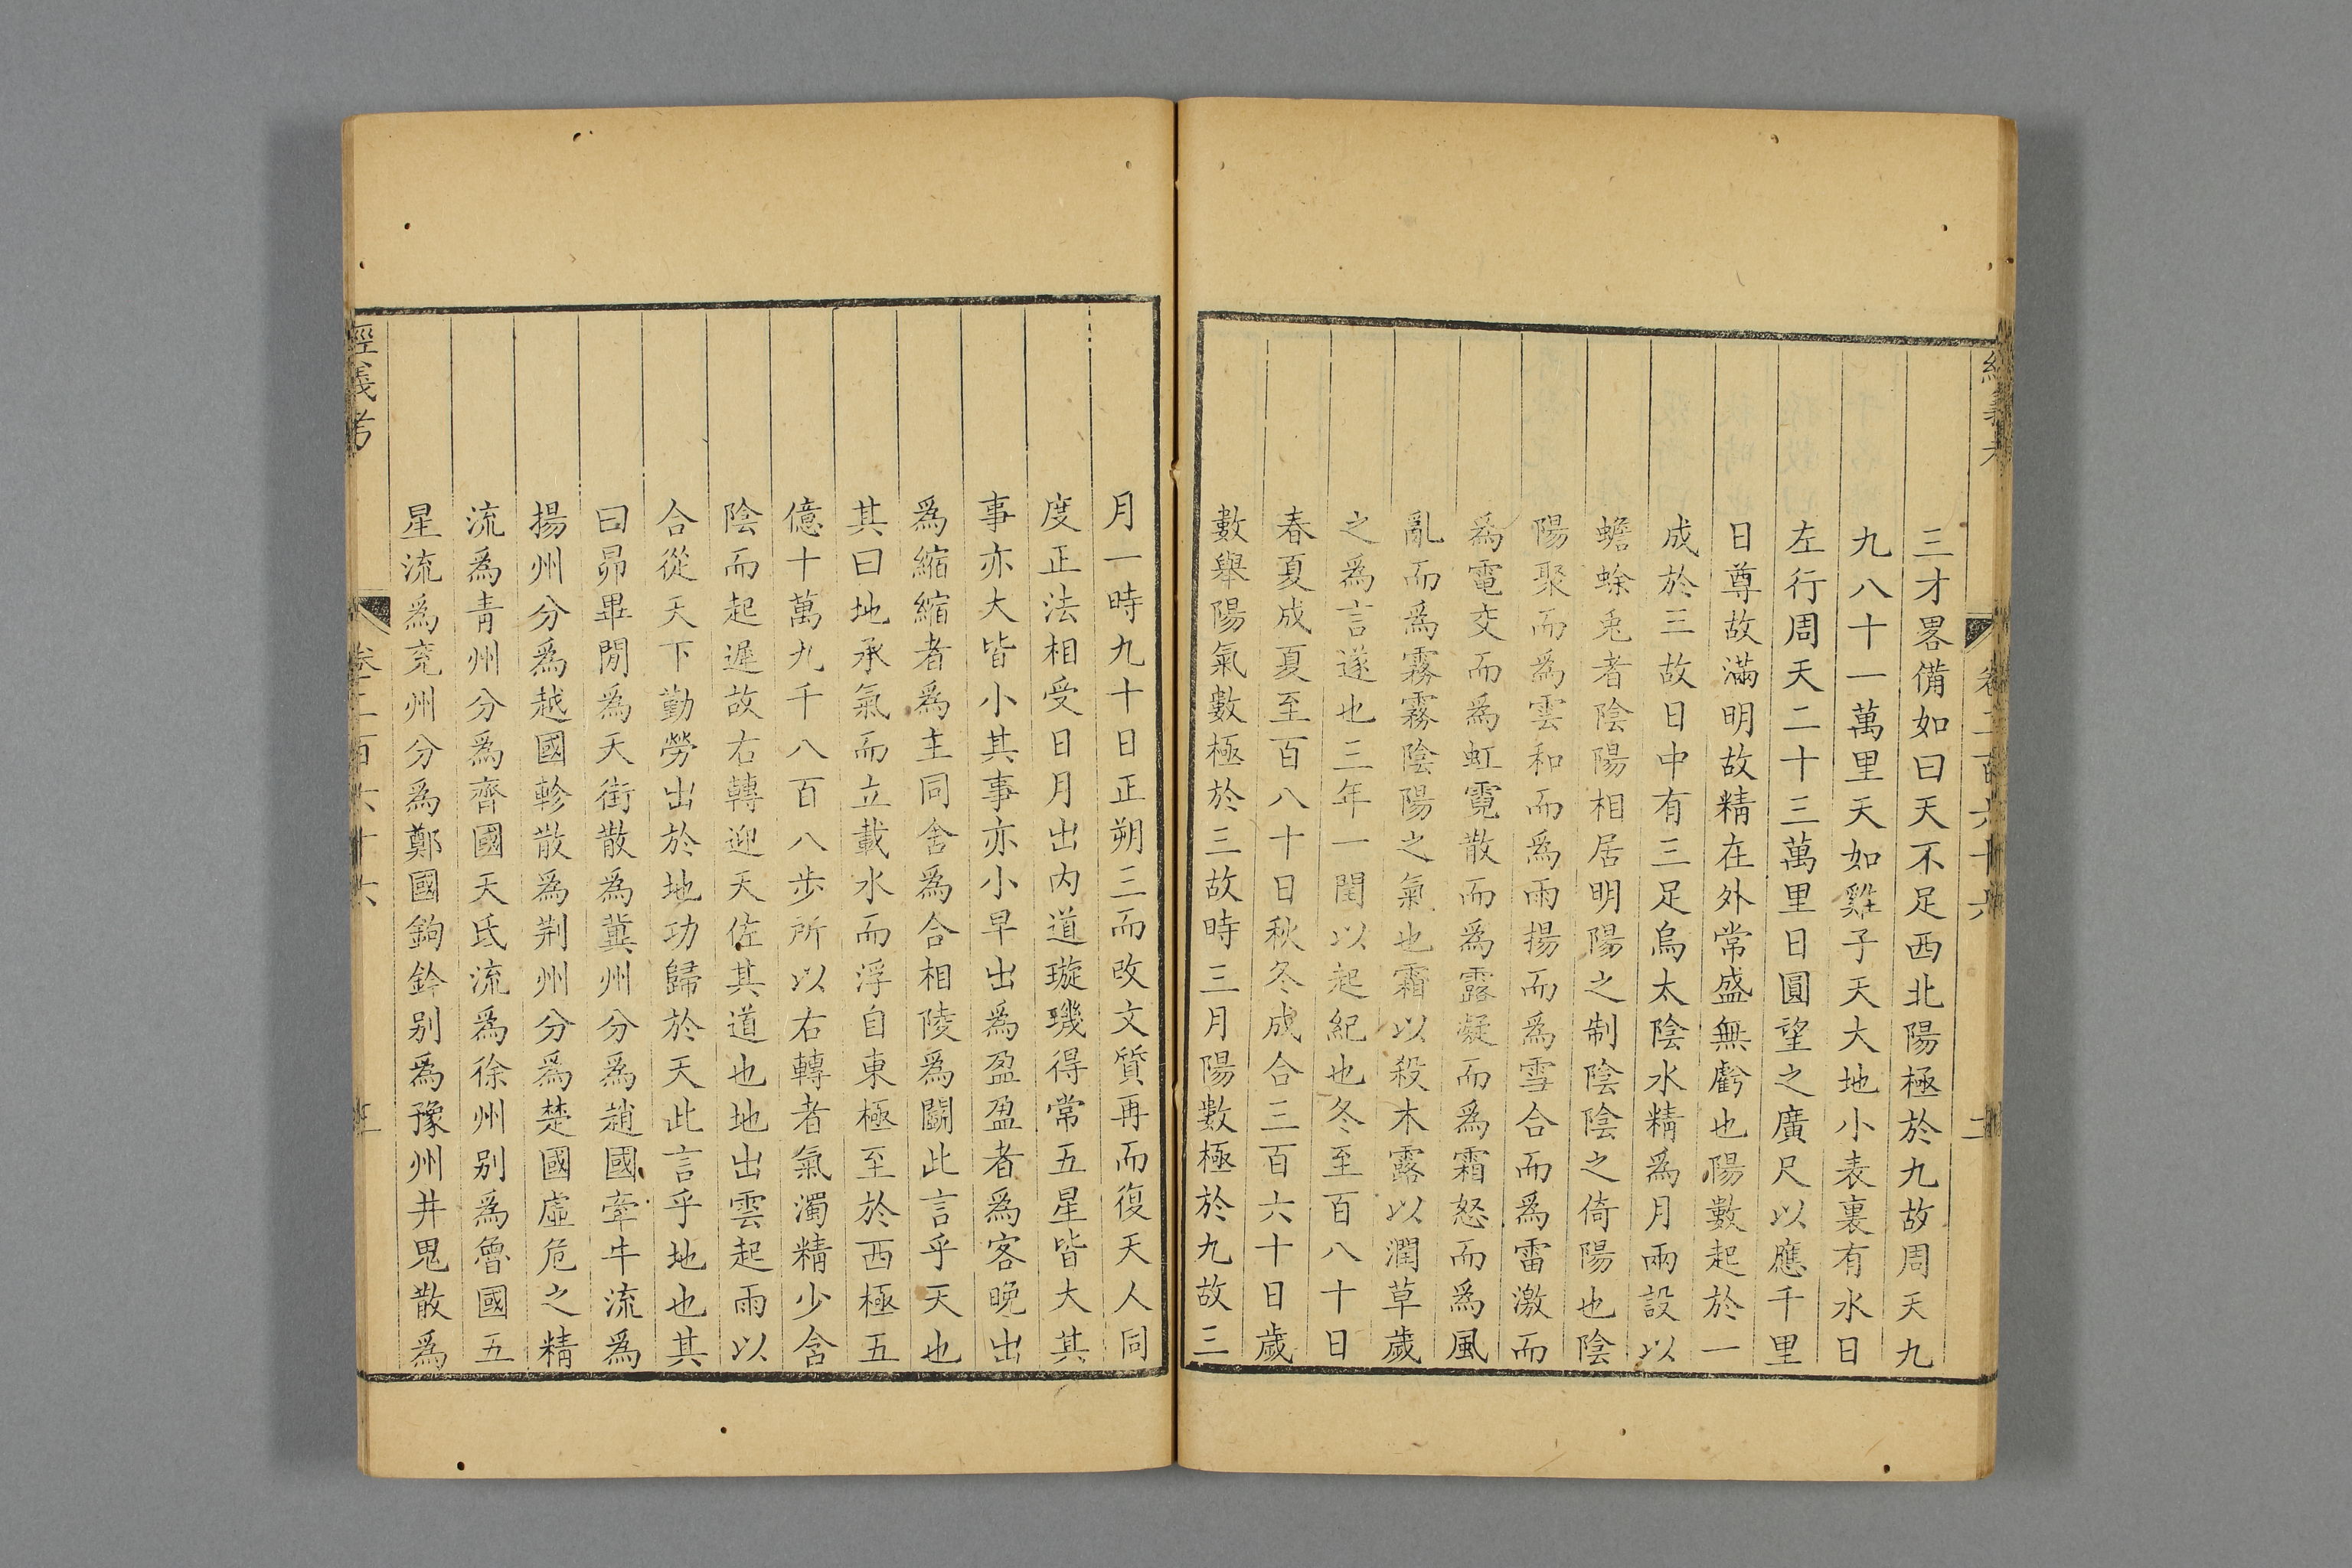 三才畧備如曰天不足西北陽極於九故周天九
九八十一萬里天如雞子天大地小表裏有水日
左行周天二十三萬里日圓望之廣尺以應千里
日尊故滿明故精在外常盛無虧也陽數起於一
成於三故日中有三足烏太陰水精為月兩設以
蟾蜍兎者陰陽相居明陽之制陰陰之倚陽也陰
陽聚而為雲和而為雨揚而為雪合而為雷激而
為電交而為虹霓散而為露凝而為霜怒而為風
亂而為霧霧陰陽之氣也霜以殺木露以潤草歲
之為言遂也三年一閏以起紀也冬至百八十日
春夏成夏至百八十日秋冬成合三百六十日歲
數舉陽氣數極於三故時三月陽數極於九故三
月一時九十日正朔三而改文質再而復天人同
度正法相受日月出內道璇璣得常五星皆大其
事亦大皆小其事亦小早出為盈盈者為客晚出
為縮縮者為主同舍為合相陵為鬭此言乎天也
其曰地承氣而立載水而浮自東極至於西極五
億十萬九千八百八步所以右轉者氣濁精少含
陰而起遲故右轉迎天佐其道也地出雲起雨以
合從天下勤勞出於地功歸於天此言乎地也其
曰昴畢間為天街散為冀州分為趙國牽牛流為
揚州分為越國軫散為荆州分為楚國虛危之精
流為青州分為齊國天氐流為徐州別為魯國五
星流為兖州分為鄭國鉤鈐別為豫州井鬼散為
經義考
卷二百六十六